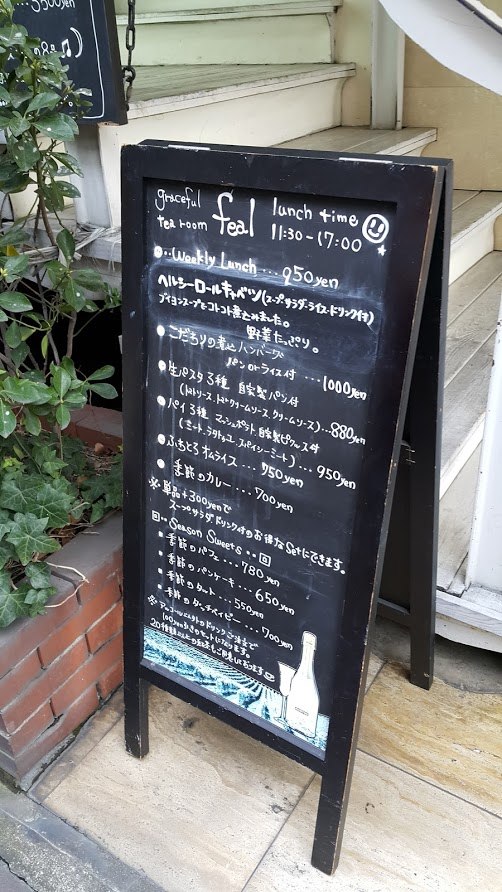 3500yen
graceful
tea room feal lunch time
11:30-17:00
・Weekly Lunch … 950yen
ヘルシーロールキャベツ(スープ.サラダ.ライス.ドリンク付)
ブイヨンスープでコトコト煮込みました。
野菜たっぷり。
・こだわりの煮込ハンバーグ
パンorライス付 … 1000yen
・生パスタ3種 自家製パン付
(トマトソース、トマトクリームソース、クリームソース)… 880yen
・パイ3種 マッシュポテト、自家製ピクルス付
(ミート、ラタトゥユ、スパイシーミート) … 950yen
・ふわとろオムライス … 950yen
・季節のカレー … 700yen
※単品+300yenで
スープ.サラダ.ドリンク付のお得なSetにできます。
回・・Season Sweets・・回
・季節のパフェ … 780yen
・季節のパンケーキ … 650yen
・季節のタルト … 550yen
・季節のダッチベイビー … 700yen